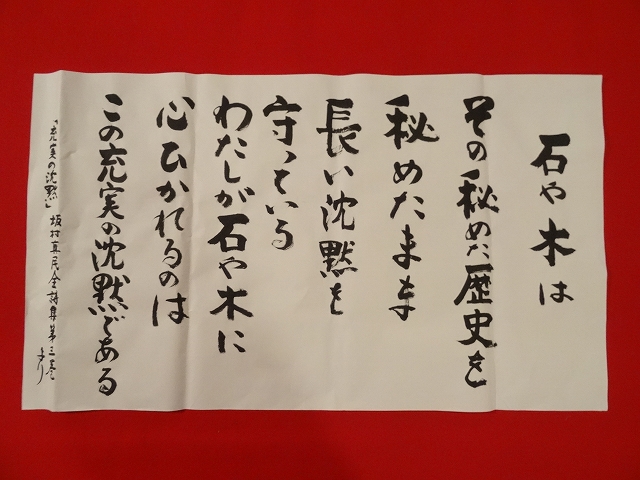 石や木は
その秘めた歴史を
秘めたまま
長い沈黙を
守っている
わたしが石や木に
心ひかれるのは
この充実の沈黙である
「充実の沈黙」 坂村真民全詩集第三巻より